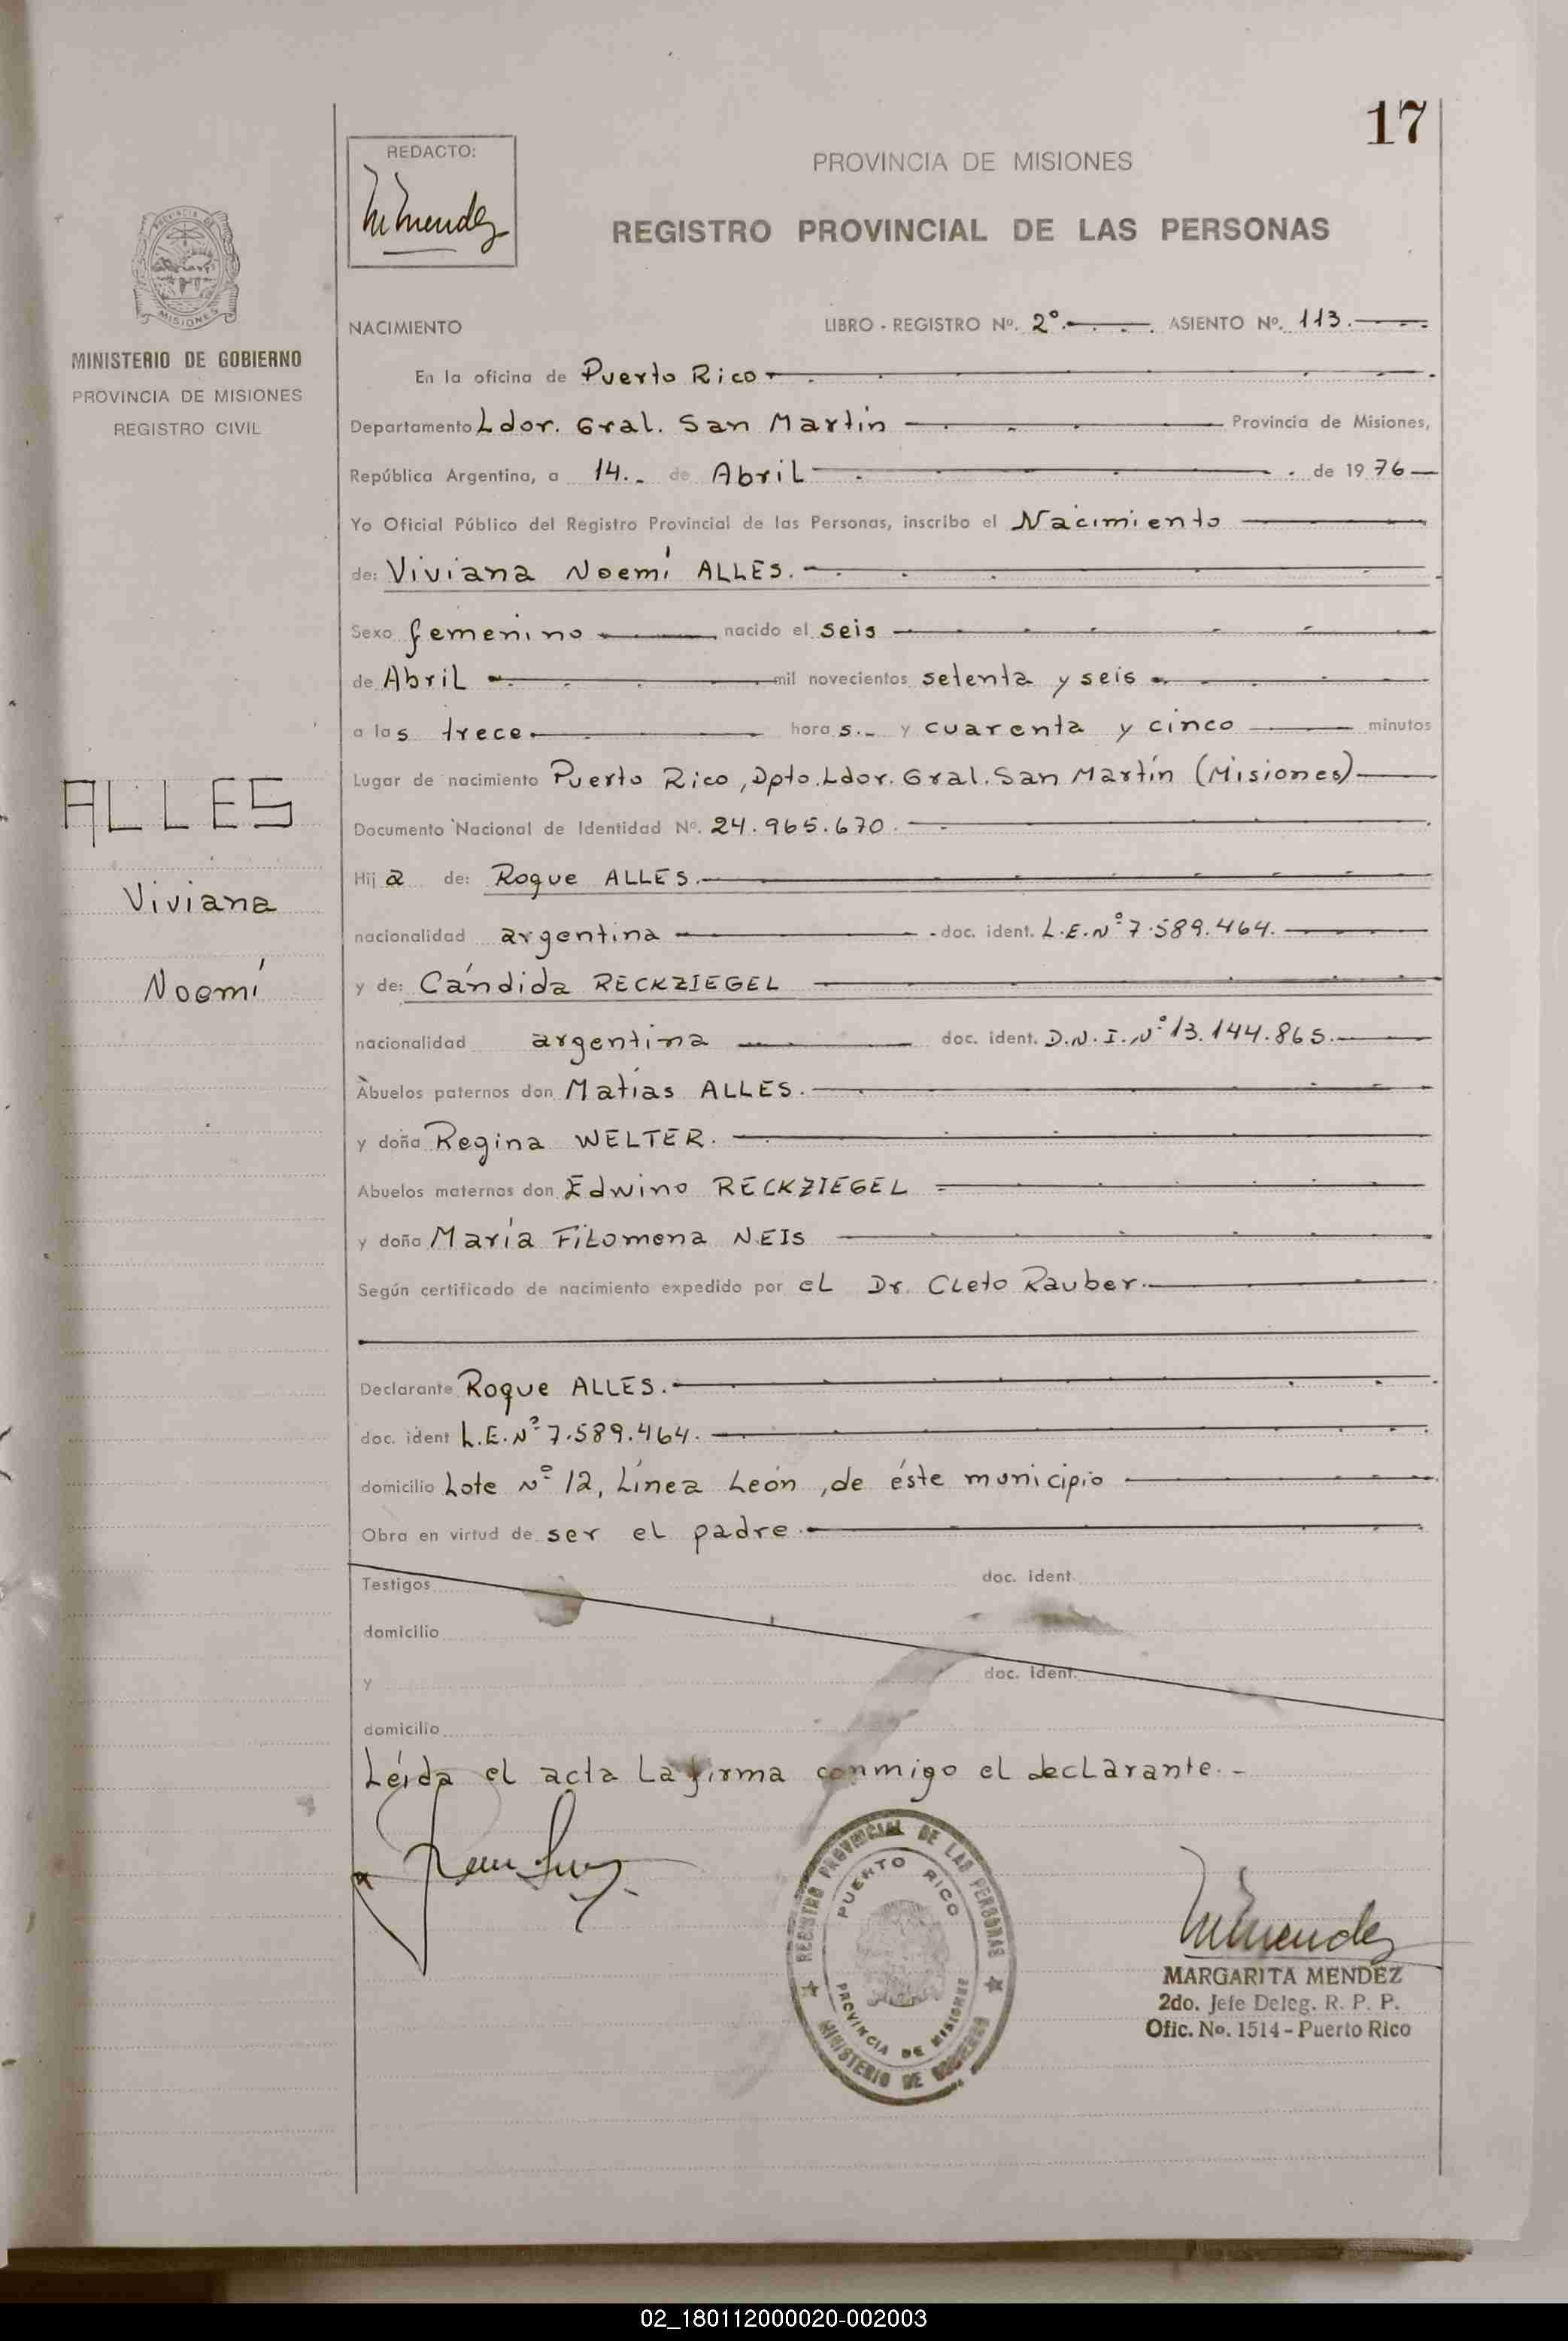 17
REDACTO:
MMendez
PROVINCIA DE MISIONES
REGISTRO PROVINCIAL DE LAS PERSONAS
MISIONES
MINISTERIO DE GOBIERNO
PROVINCIA DE MISIONES
REGISTRO CIVIL
NACIMIENTO LIBRO - REGISTRO Nº. 2º. ASIENTO Nº. 113.
En la oficina de Puerto Rico
Departamento Ldor. Gral. San Martín Provincia de Misiones,
República Argentina, a 14. de Abril de 1976
Yo Oficial Público del Registro Provincial de las Personas, inscribo el Nacimiento
de: Viviana Noemí ALLES.
Sexo femenino nacido el seis
de Abril mil novecientos setenta y seis
a las trece horas. y cuarenta y cinco minutos
Lugar de nacimiento Puerto Rico, Dpto. Ldor. Gral. San Martín (Misiones)
Documento Nacional de Identidad Nº. 24.965.670.
Hija de: Roque ALLES.
nacionalidad argentina doc. ident. L.E.Nº 7.589.464.
y de: Cándida RECKZIEGEL
nacionalidad argentina doc. ident. D.N.I. Nº 13.144.865.
Abuelos paternos don Matías ALLES.
y doña Regina WELTER.
Abuelos maternos don Edwino RECKZIEGEL
y doña María Filomena NEIS
Según certificado de nacimiento expedido por el Dr. Cleto Rauber.
Declarante Roque ALLES.
doc. ident L.E.Nº 7.589.464.
domicilio Lote Nº 12, Línea León, de éste municipio
Obra en virtud de ser el padre.
Testigos doc. ident.
domicilio
y doc. ident.
domicilio
Leída el acta la firma conmigo el declarante.-
ALLES
Viviana
Noemí
REGISTRO PROVINCIAL DE LAS PERSONAS
PUERTO RICO
PROVINCIA DE MISIONES
MINISTERIO DE GOBIERNO
MMendez
MARGARITA MENDEZ
2do. Jefe Deleg. R. P. P.
Ofic. No. 1514 - Puerto Rico
02_180112000020-002003